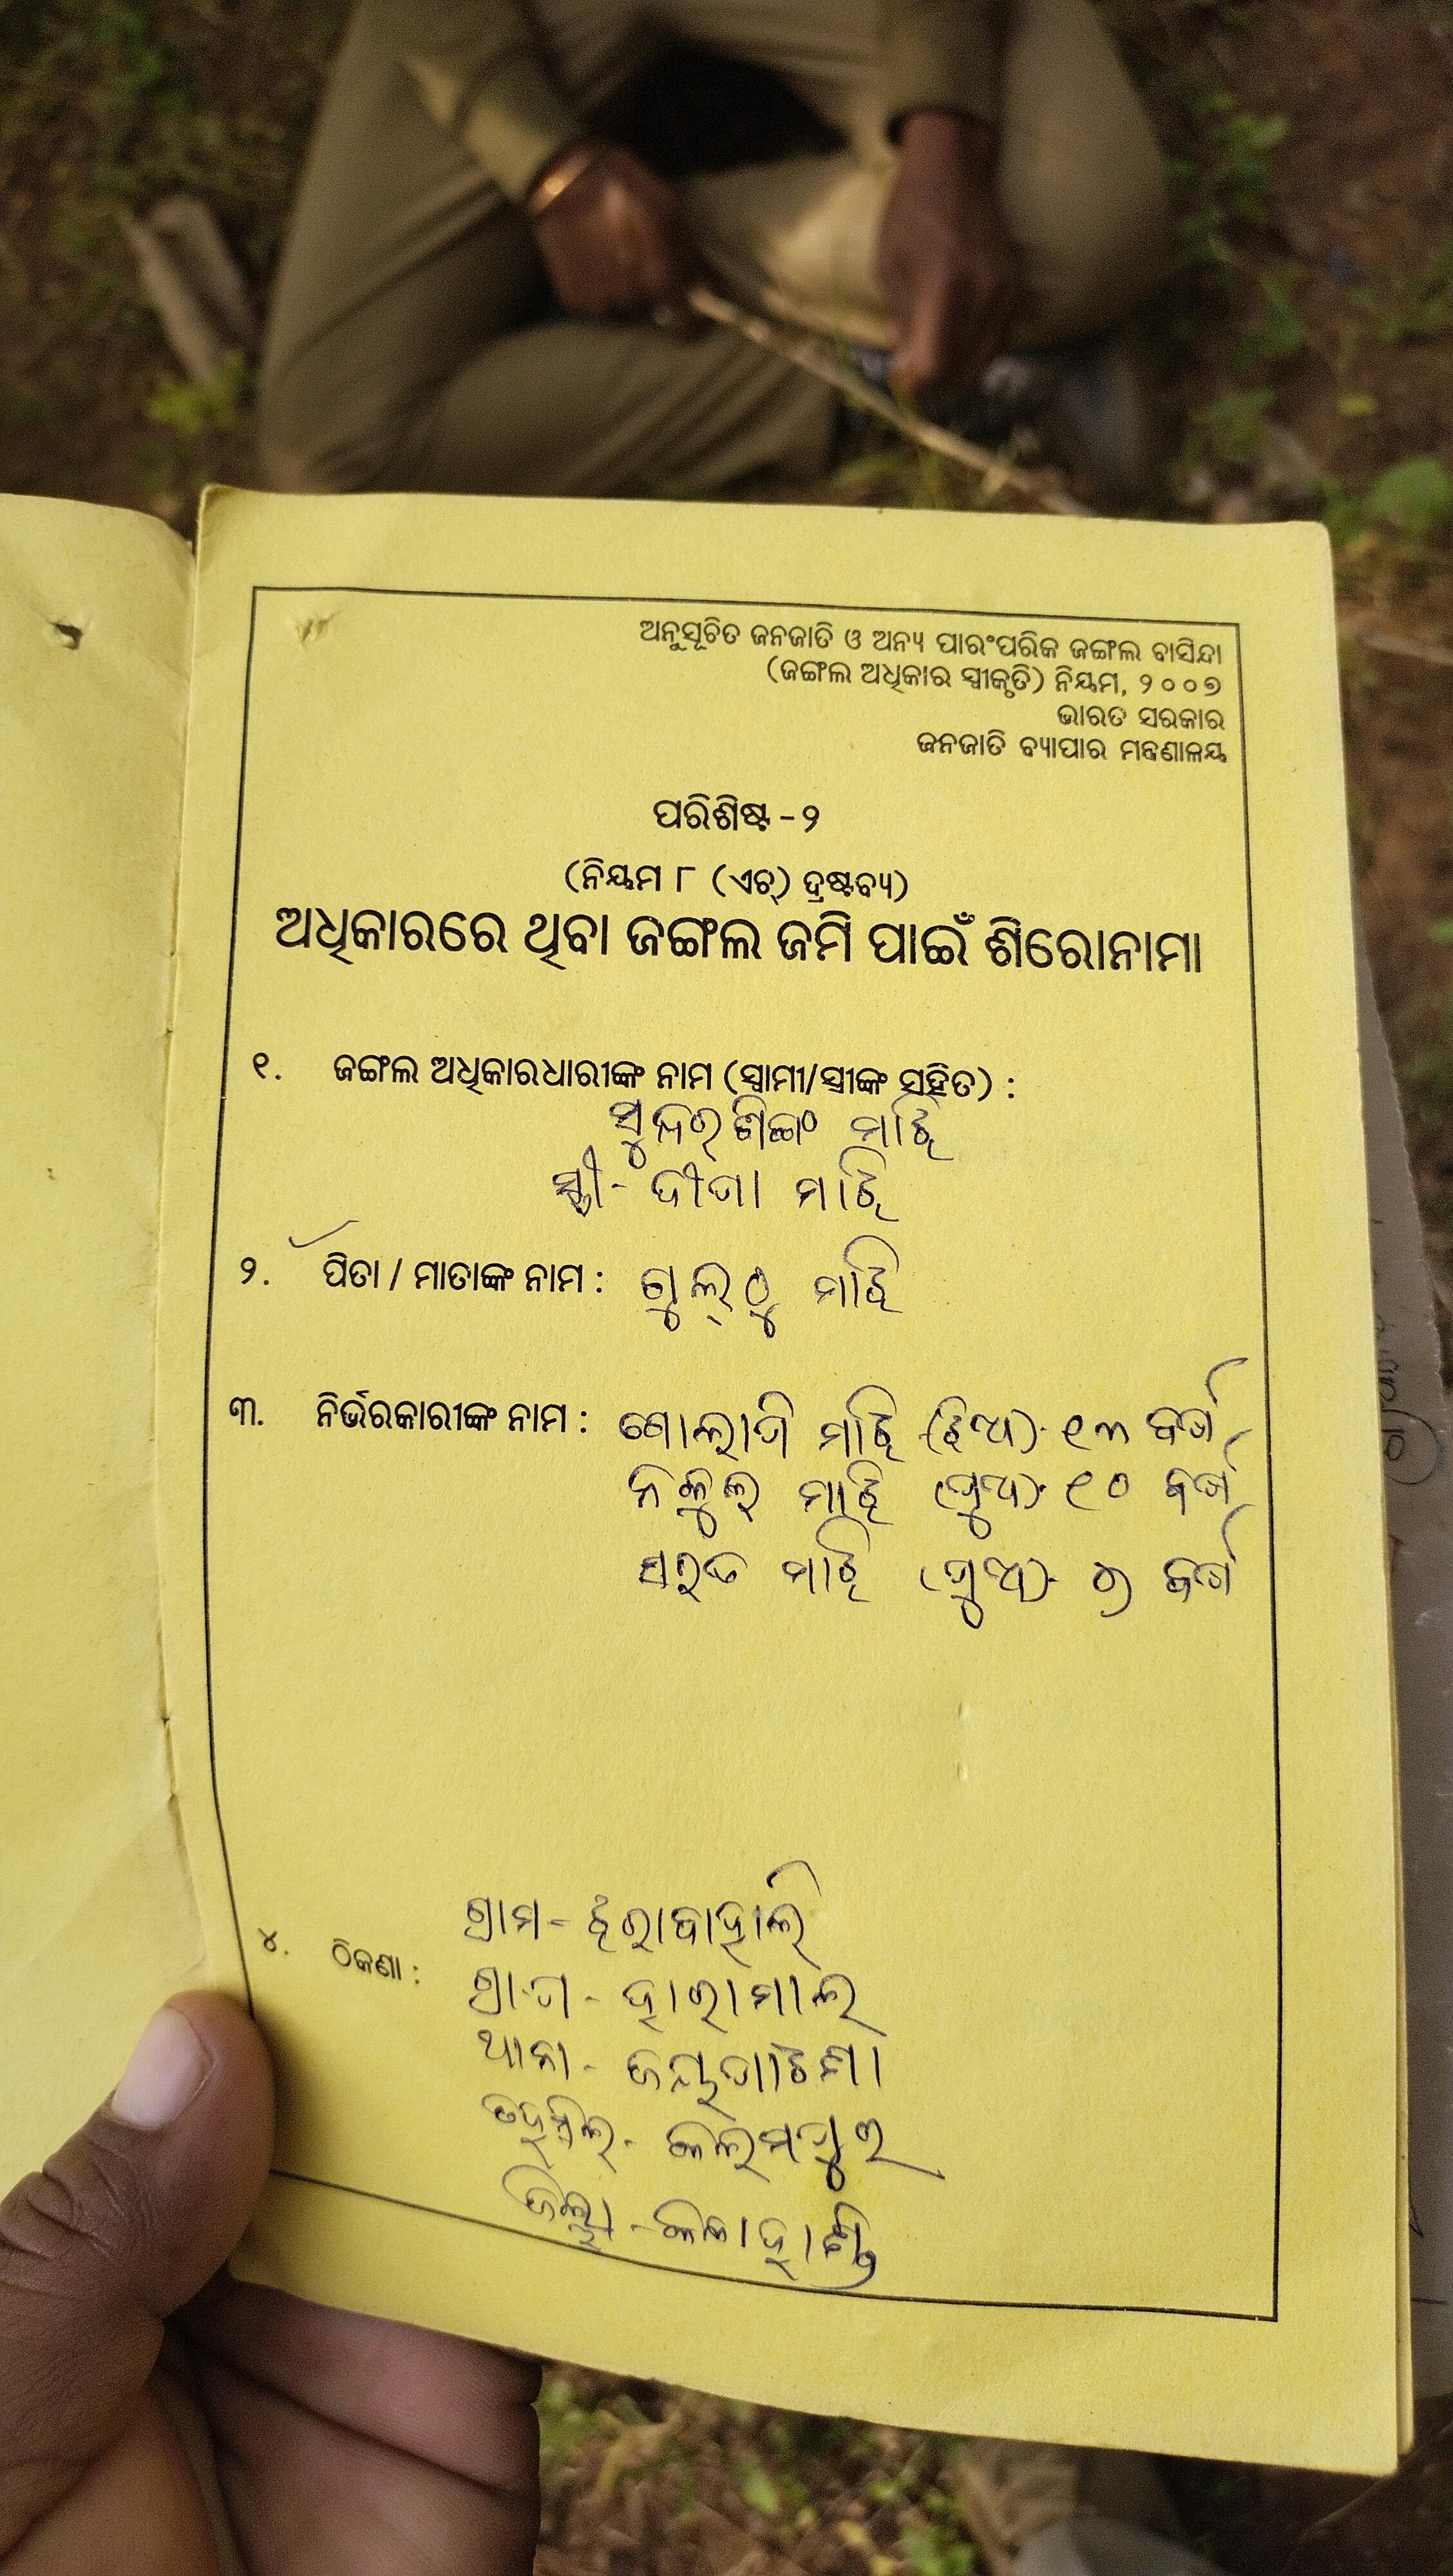 ଅନୁସୂଚିତ ଜନଜାତି ଓ ଅନ୍ୟ ପାରଂପରିକ ଜଙ୍ଗଲ ବାସିନ୍ଦା
(ଜଙ୍ଗଲ ଅଧିକାର ସ୍ୱୀକୃତି) ନିୟମ, ୨୦୦୭
ଭାରତ ସରକାର
ଜନଜାତି ବ୍ୟାପାର ମନ୍ତ୍ରଣାଳୟ
ପରିଶିଷ୍ଟ -୨
(ନିୟମ ୮ (ଏଚ୍) ଦ୍ରଷ୍ଟବ୍ୟ)
ଅଧିକାରରେ ଥିବା ଜଙ୍ଗଲ ଜମି ପାଇଁ ଶିରୋନାମା
୧. ଜଙ୍ଗଲ ଅଧିକାରଧାରୀଙ୍କ ନାମ (ସ୍ୱାମୀ/ସ୍ତ୍ରୀଙ୍କ ସହିତ) :
ମାଝି
ସ୍ତ୍ରୀ- ମାଝି
୨. ପିତା / ମାତାଙ୍କ ନାମ : ମାଝି
୩. ନିର୍ଭରକାରୀଙ୍କ ନାମ : ମାଝି (ଝିଅ)- ୧୩ ବର୍ଷ
ନକୁଲ ମାଝି (ପୁଅ)- ୧୦ ବର୍ଷ
ମାଝି (ପୁଅ)- ବର୍ଷ
ଗ୍ରାମ-
୪. ଠିକଣା :
ଗ୍ରା.ପ -
ଥାନା - ଜୟପାଟଣା
ତହସିଲ -
ଜିଲ୍ଲା - କଳାହାଣ୍ଡି